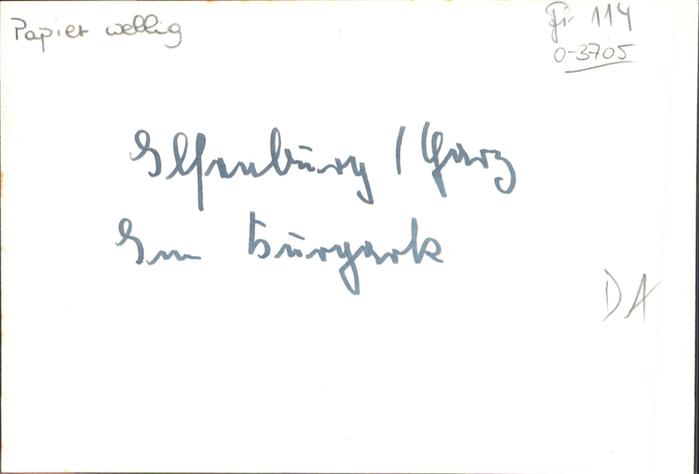 Papier wellig
Fi 114
0-3705
Ilsenburg / Harz
Im Kurpark
DA